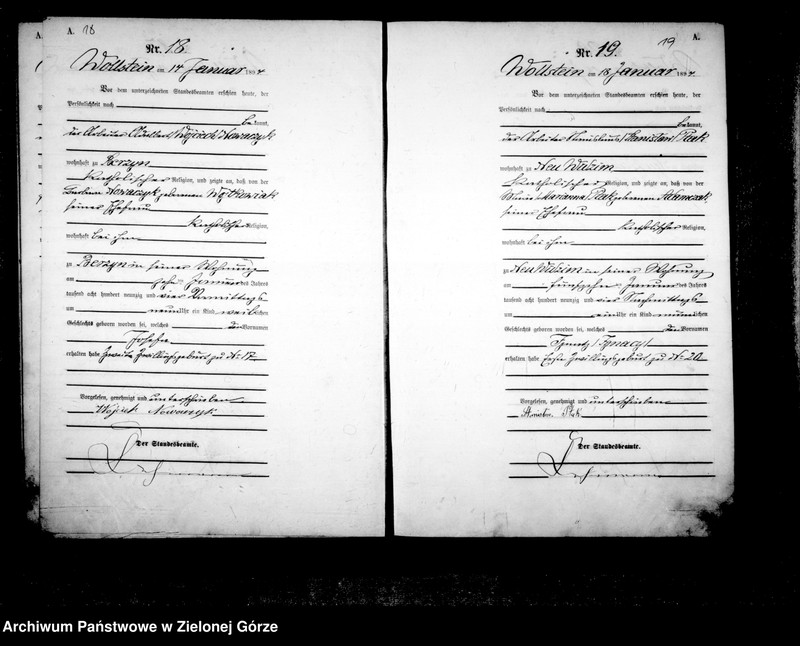 A. 18
Nr. 18
Wollstein am 14 Januar 1894
Vor dem unterzeichneten Standesbeamten erschien heute, der
Persönlichkeit nach
bekannt,
der Arbeiter Adalbert/Wojciech/Nowaczyk
wohnhaft zu Berzyn
katholischer Religion, und zeigte an, daß von der
Nowaczyk geborenen
seiner Ehefrau
katholischer Religion,
wohnhaft bei ihm
zu Berzyn in seiner Wohnung
am Januar des Jahres
tausend acht hundert neunzig und vier Vormittags
um neun Uhr ein Kind weiblichen
Geschlechts geboren worden sei, welches den Vornamen
erhalten habe Zweite Zwillingsgeburt zu Nr. 17
Vorgelesen, genehmigt und unterschrieben
Nowaczyk
Der Standesbeamte.
19 A.
Nr. 19.
Wollstein am 18 Januar 1894.
Vor dem unterzeichneten Standesbeamten erschien heute, der
Persönlichkeit nach
bekannt,
der Arbeiter Stanislaus/Stanislaw/Ptak
wohnhaft zu Neu Widzim
katholischer Religion, und zeigte an, daß von der
Marianna/Ptak geborenen Adamczak
seiner Ehefrau
katholischer Religion,
wohnhaft bei ihm
zu Neu Widzim in seiner Wohnung
am fünfzehn Januar des Jahres
tausend acht hundert neunzig und vier Nachmittags
um ein Uhr ein Kind männlichen
Geschlechts geboren worden sei, welches den Vornamen
Ignatz/Ignacy/
erhalten habe Erste Zwillingsgeburt zu Nr. 20
Vorgelesen, genehmigt und unterschrieben
Ptak
Der Standesbeamte.
Archiwum Państwowe w Zielonej Górze